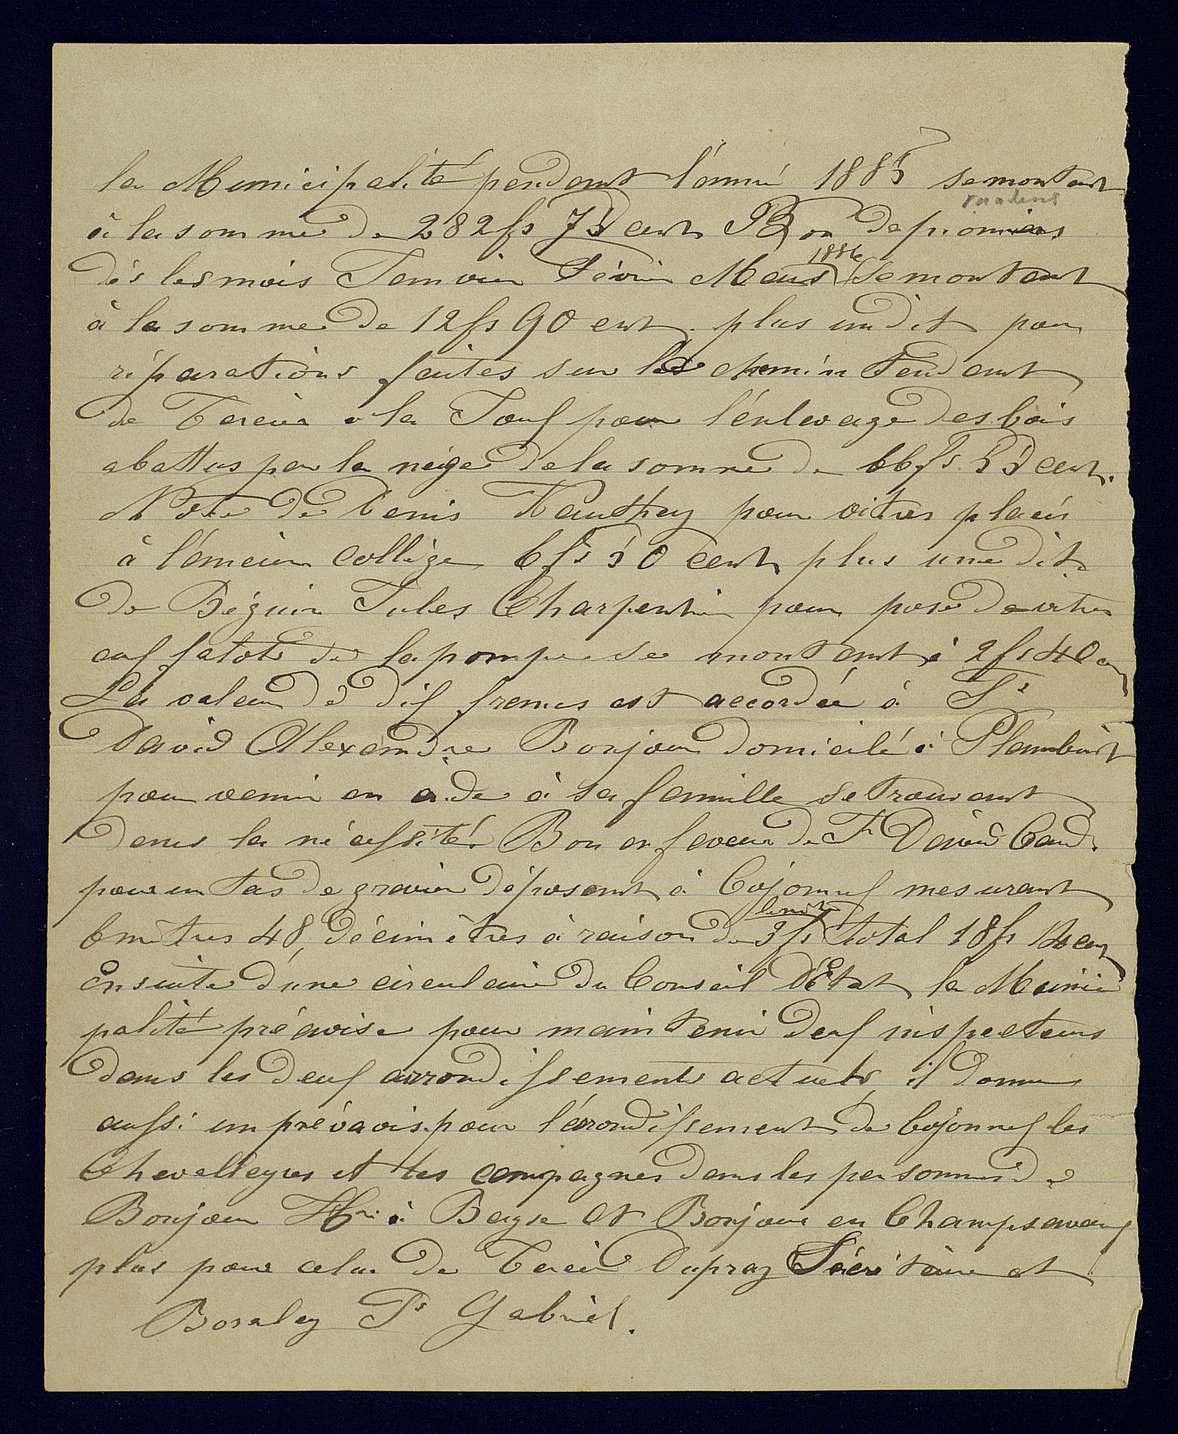 la Municipalité pendant l'anné 1885 se montant
à la somme de 282 fs 75 cent Bon de pionniers
dès les mois Janvier Févrié Mars 1886 Se montant
à la somme de 12 fs 90 cent. plus un dit pour
réparations faites sur les chemin tendant
de Tercier à la pour l'énlevage des bois
abattus par la neige de la somme de 66 fs 55 cent.
Note de Denis pour vitres placés
à l'ancien collège 6 fs 50 cent plus une dite
de Béguin Jules Charpentier pour pose de vitres
au falot de la pompe se montant à 2 fs 40 c
La valeur de dix francs est accordée à Fs
David Alexandre Bonjour domicilé à
pour venir en aide à sa famille se trouvant
dans la nécessité Bon en faveur de Fs David
pour un tas de gravier déposant à Cojonnex mesurant
6 mètres 48 décimètres à raison de 3 fs le mètre total 18 fs 14 cent
Ensuite d'une circulaire du Conseil d'Etat la Munici
palité préavise pour maintenir deux inspecteurs
dans les deux arrondissements actuels, il donne
aussi un préavis pour l'érondissement de Cojonnex les
Chevalleyres et les campagnes dans les personnes de
Bonjour Hri à Bayse et Bonjour en Champsavaux
plus pour celui de Tercier Dupraz Sécrétaire et
Bovaley Fs Gabriel.